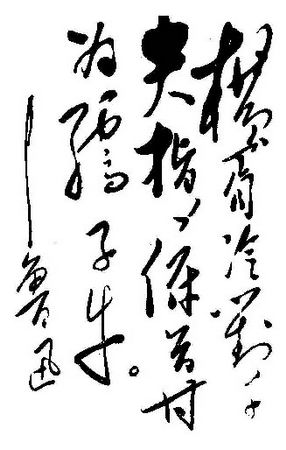 横眉冷對千
夫指，俯首甘
为孺子牛。
—鲁迅